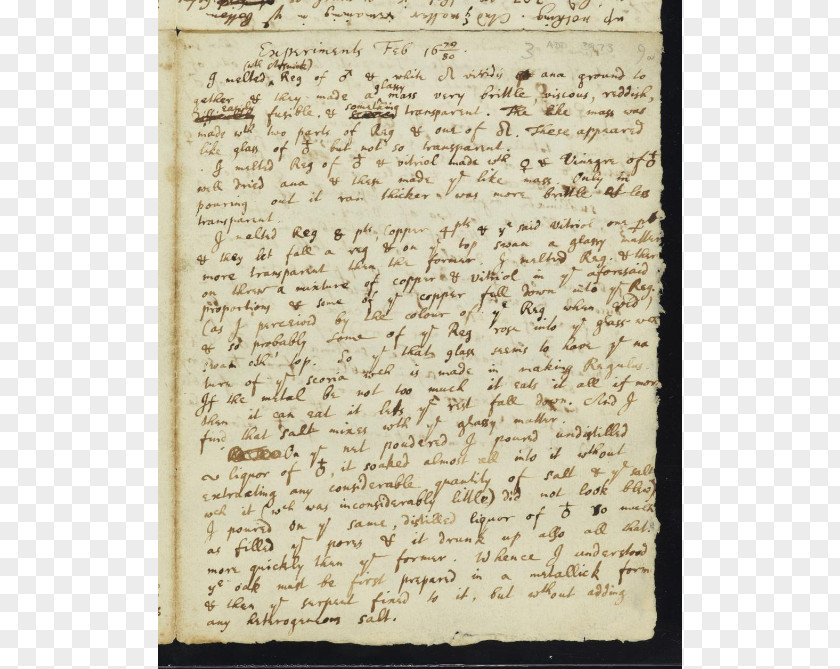 Experiments Feb 16 79/80.
(with Arsnick)
I melted Reg of ♂ & white viridis ana ground to
glassy
gether & they made a mass very brittle, viscous, reddish,
easily something
fusible, & transparent. The like mass was
made wth two parts of Reg & one of These appeared
like glass of ♁ but not so transparent.
I melted Reg of ♁ & vitriol made wth ♀ & Vinegre of ♁
well dried ana & these made ye like mass. Only in
pouring out it ran thicker & was more brittle & less
transparent.
I melted Reg 8 pts, Copper 4 pts & ye said Vitriol one pt
& they let fall a reg & on ye top swam a glassy matter
more transparent then the former. I melted Reg. & then
on threw a mixture of copper & Vitriol in ye aforesaid
proportions & some of ye copper fell down into ye Reg.
(as I perceived by the colour of ye Reg when cold
& so probably some of ye Reg rose into ye glass wch
swam top. So yt that glass seems to have ye na
ture of ye scoria wch is made in making Regulus.
If the metal be not too much it eats it all if more
then it can eat it lets ye rest fall down. And I
find that salt mixes wth ye glassy matter.
On ye net poudered I poured undistilled
liquor of ♁, it soaked almost all into it without
extracting any considerable quantity of salt & ye salt
wch it (wch was inconsiderably little) did not look blew
I poured on ye same, distilled liquor of ♁ so much
as filled ye pores & it drunk up also all that
more quickly then ye former. Whence I understood
ye oak must be first prepared in a metallick form
& then ye serpent fixed to it, but without adding
any heterogeneous salt.